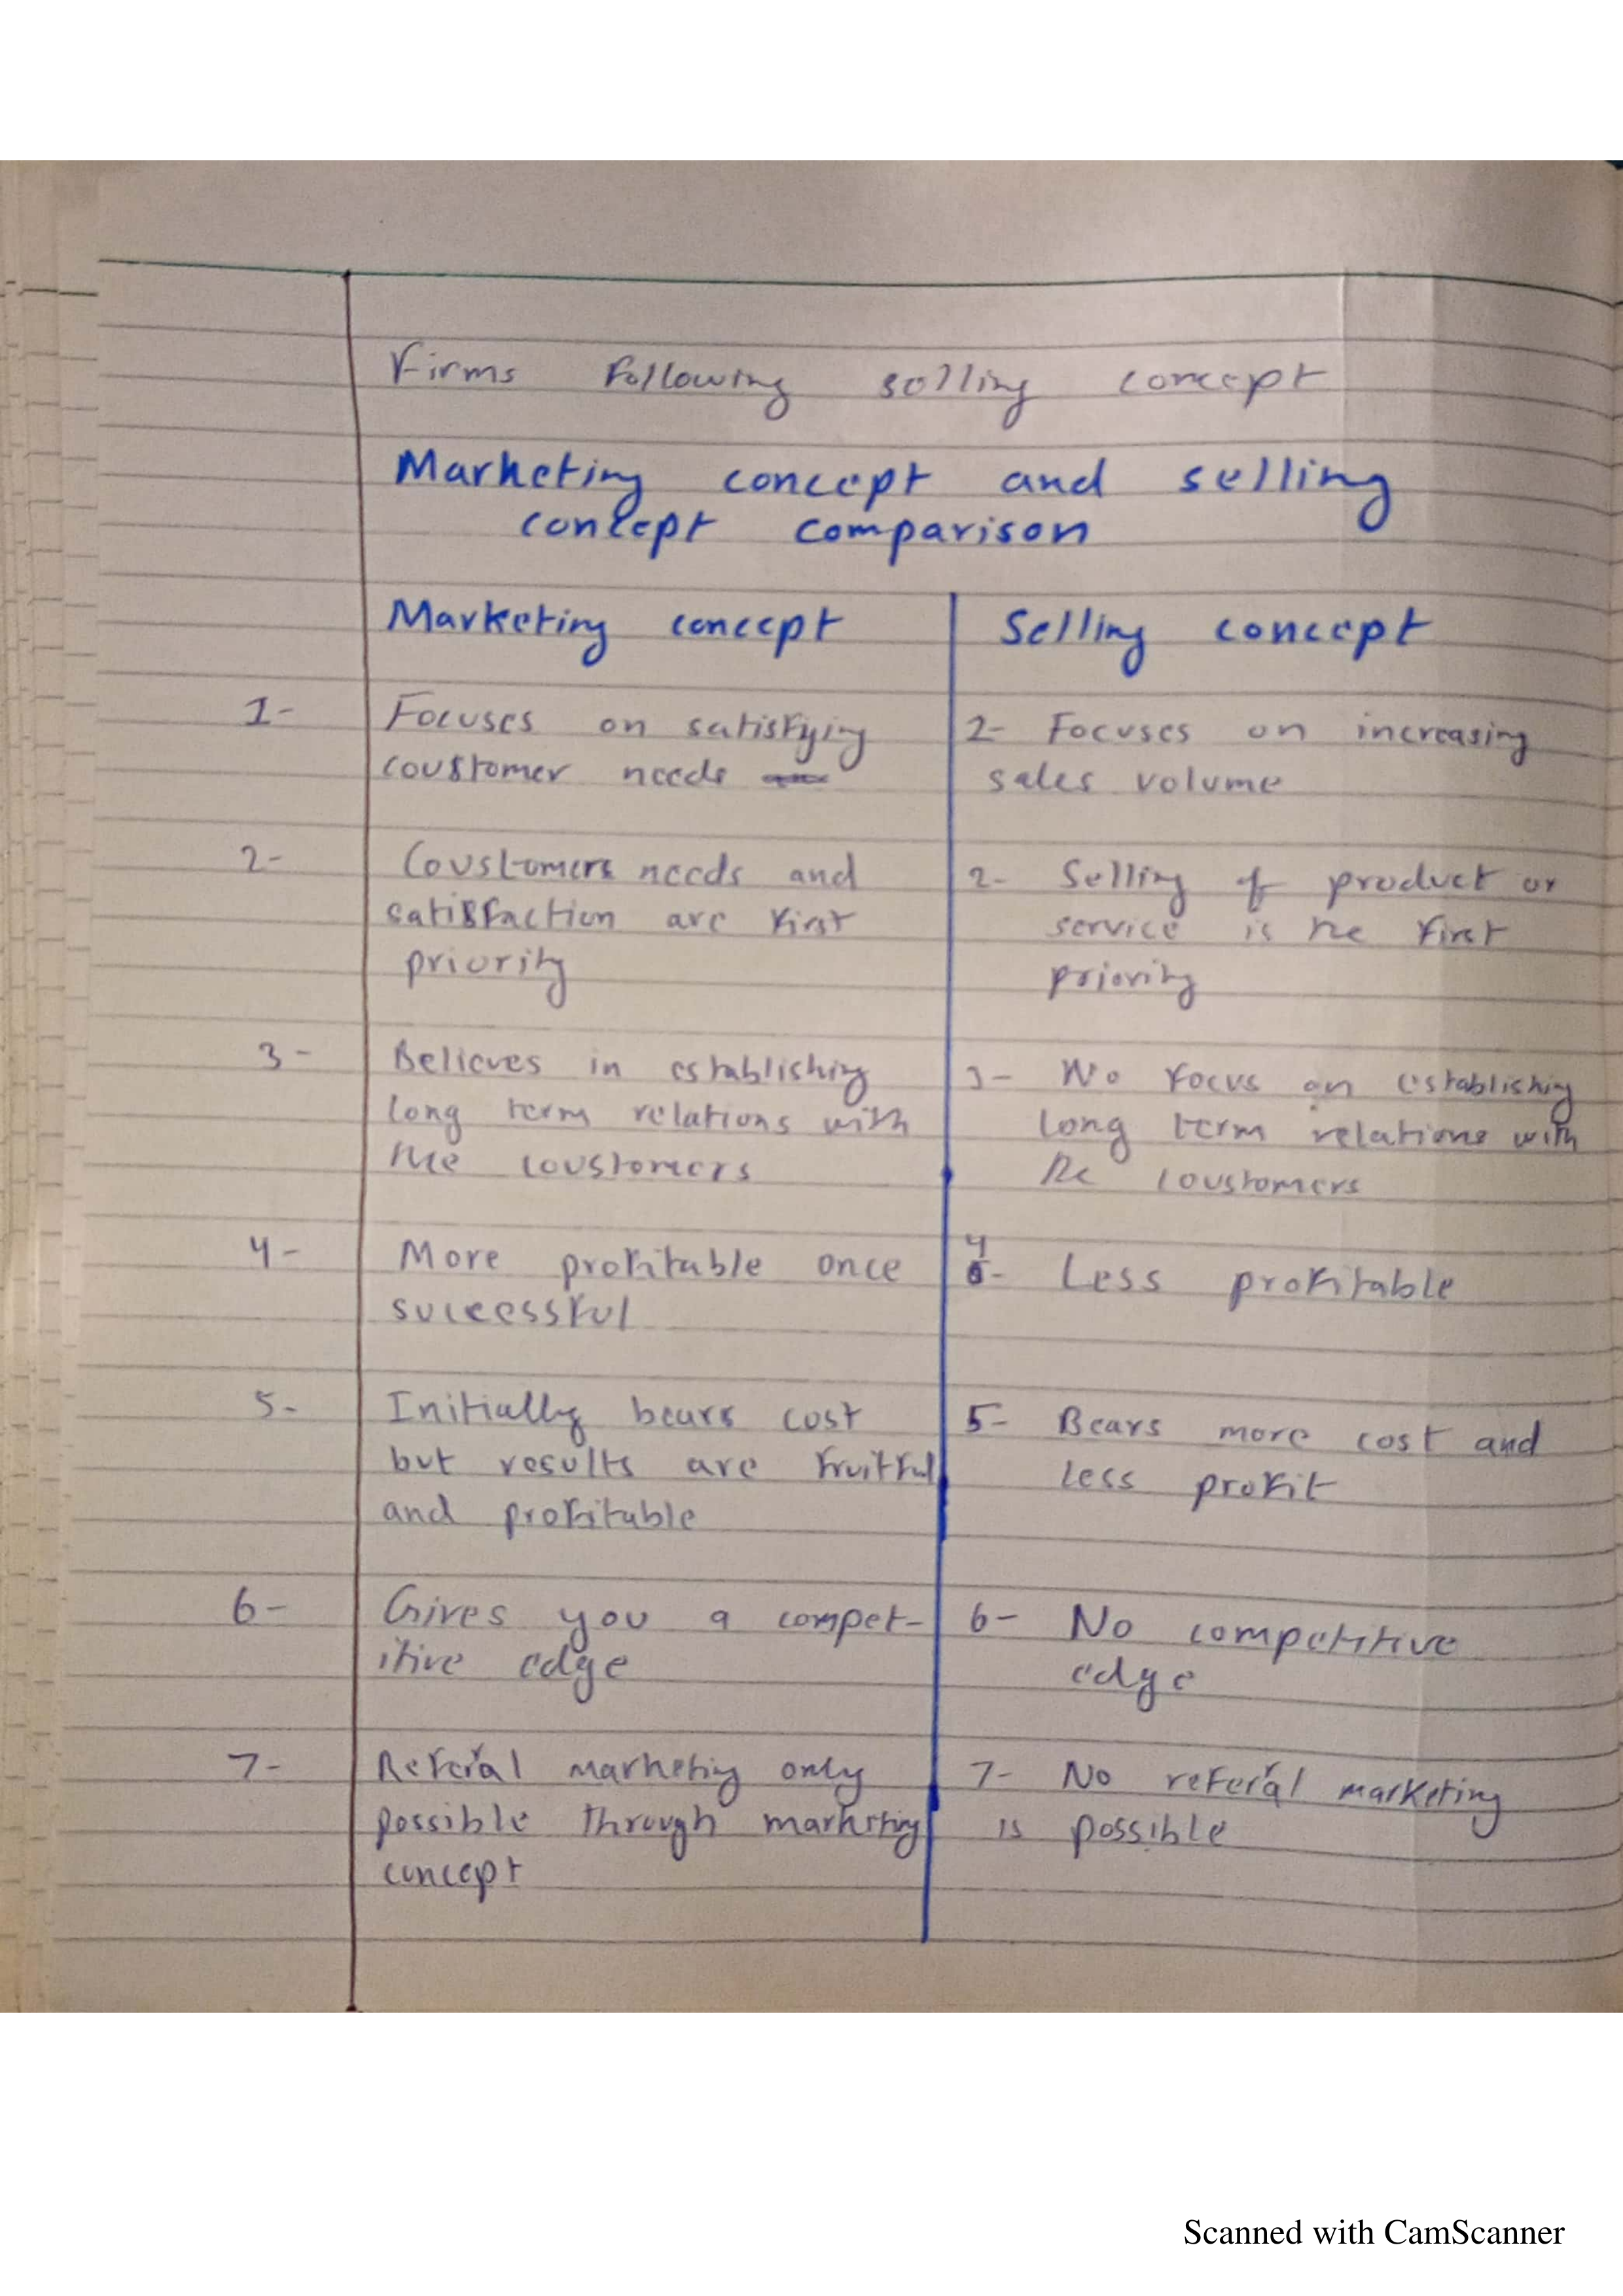 Firms following selling concept
Marketing concept and selling
concept comparison
Marketing concept
Selling concept
1- Focuses on satisfying
coustomer needs
2- Focuses on increasing
sales volume
2- Coustomers needs and
satisfaction are first
priority
2- Selling of product or
service is the first
priority
3- Believes in establishing
long term relations with
the coustomers
3- No focus on establishing
long term relations with
the coustomers
4- More profitable once
successful
4- Less profitable
5- Initially bears cost
but results are fruitful
and profitable
5- Bears more cost and
less profit
6- Gives you a compet-
itive edge
6- No competitive
edge
7- Referal marketing only
possible through marketing
concept
7- No referal marketing
is possible
Scanned with CamScanner